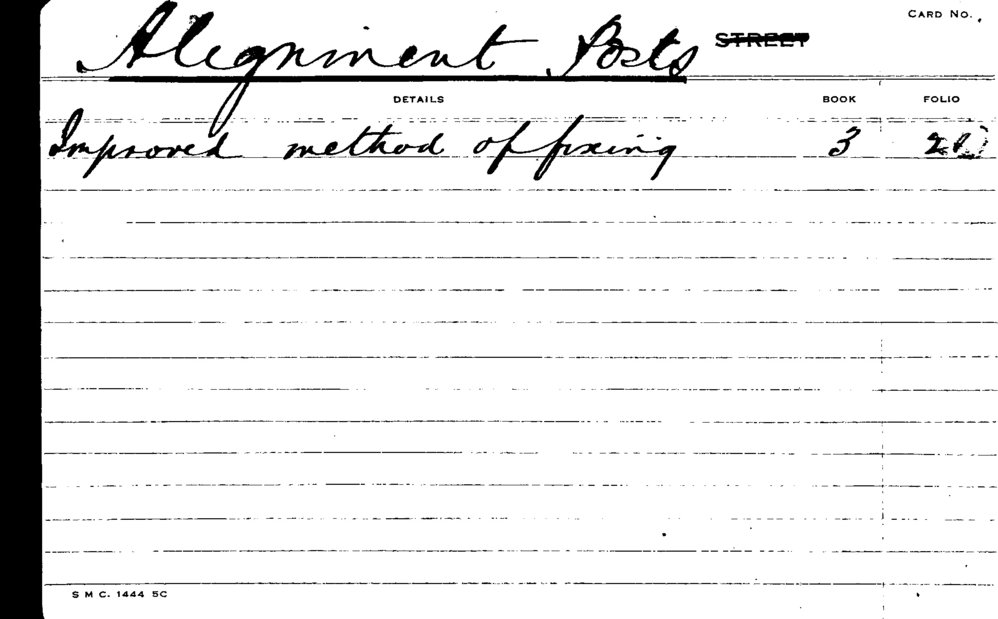 CARD No.
Alignment Posts STREET
DETAILS BOOK FOLIO
Improved method of fixing 3
S M C. 1444 5C